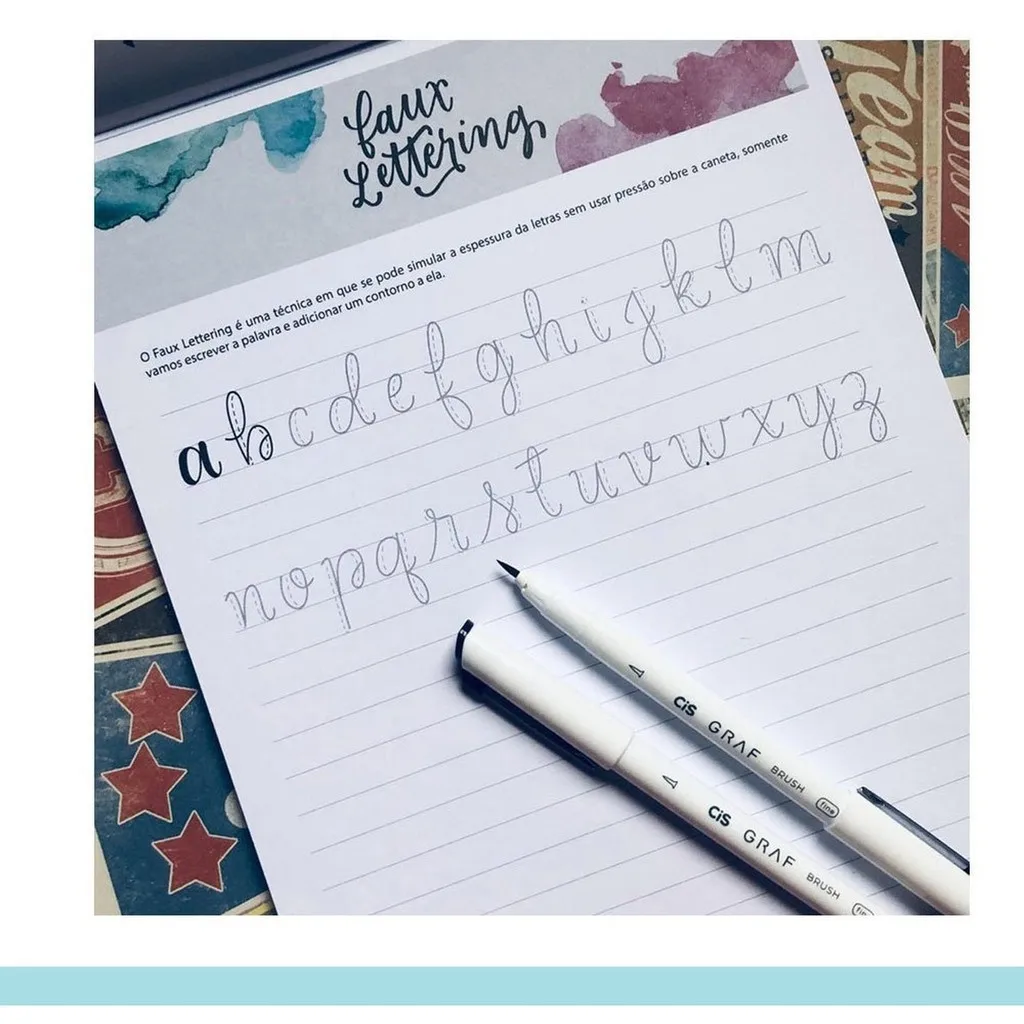 faux
Lettering
O Faux Lettering é uma técnica em que se pode simular a espessura da letras sem usar pressão sobre a caneta, somente
vamos escrever a palavra e adicionar um contorno a ela.
a b c d e f g h i j k l m
n o p q r s t u v w x y z
CiS GRAF BRUSH fine
CiS GRAF BRUSH fine
Team